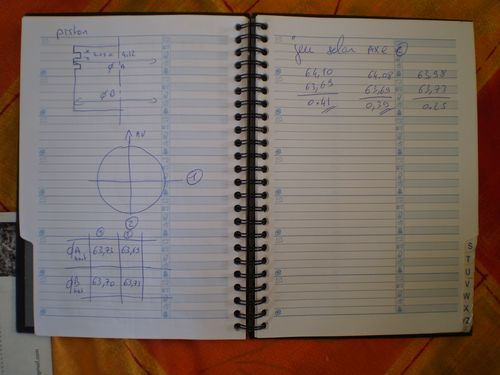 piston
φA
φB
AV
1
2
1 2
φA 63,73 63,69
haut
φB 63,70 63,73
bas
jeu selon AXE 2
64,10 64,08 63,98
63,69 63,69 63,73
0.41 0,39 0.25
S
T
U
V
W
X